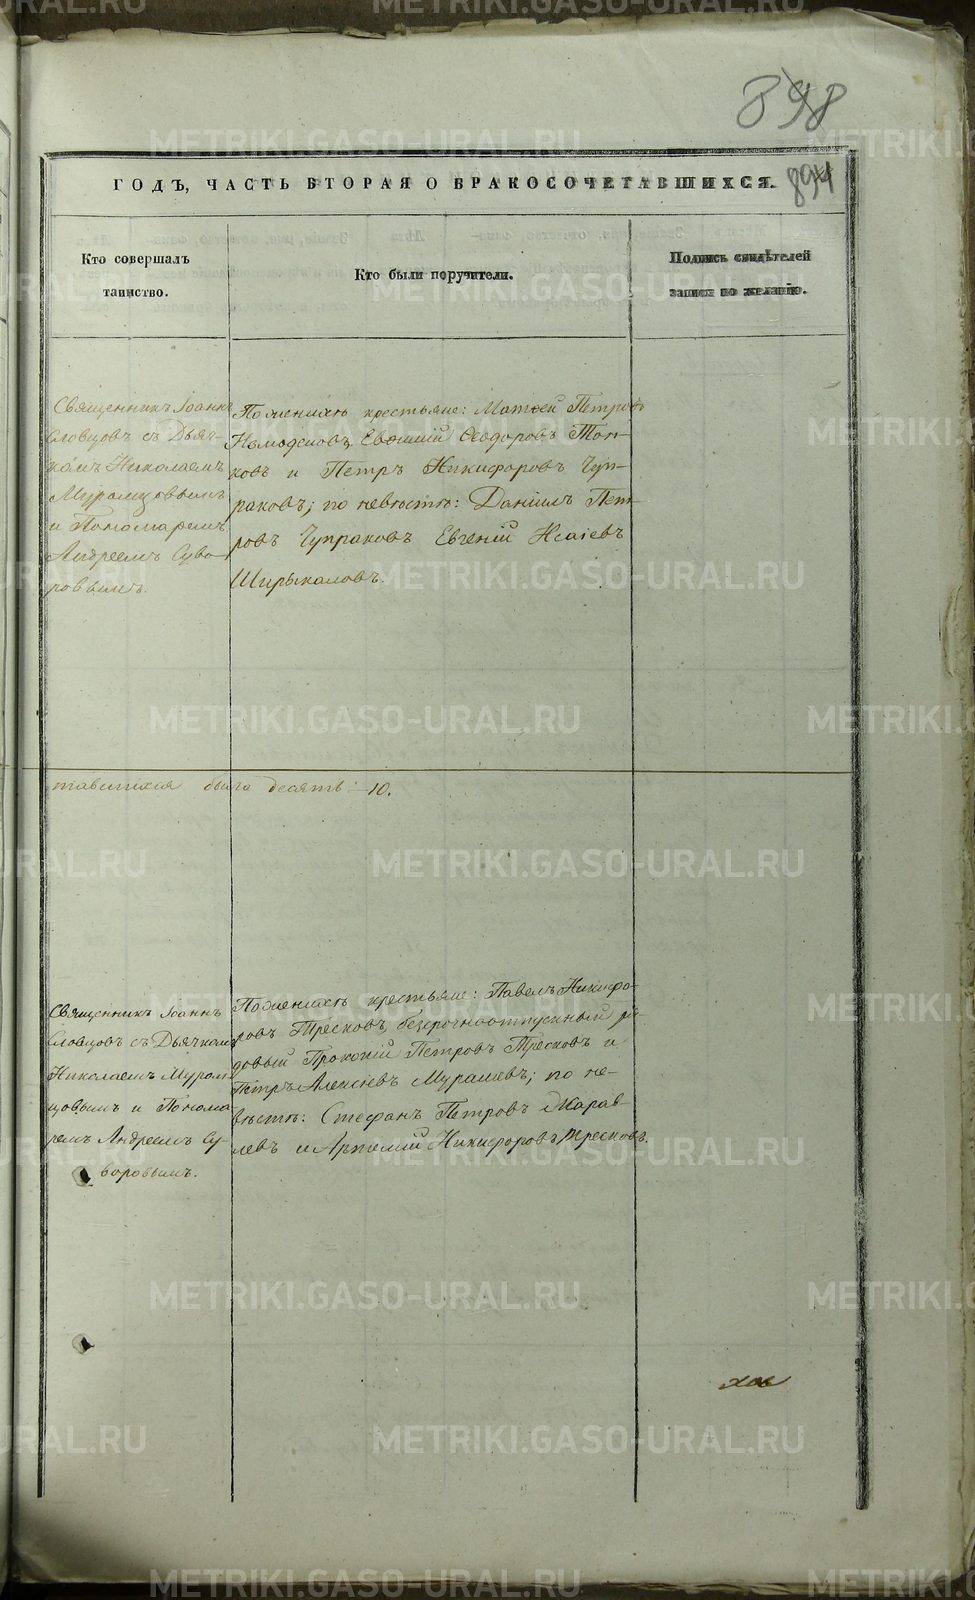 898
894
ГОДЪ, ЧАСТЬ ВТОРАЯ О БРАКОСОЧЕТАВШИХСЯ.
Кто совершалъ
таинство.
Кто были поручители.
Подпись свидѣтелей
записи по желанію.
Священникъ Іоаннъ
Словцовъ съ Дьяч-
комъ Николаемъ
Муромцовымъ
и Пономаремъ
Андреемъ Суво-
ровымъ.
По женихѣ крестьяне: Матѳей Петровъ
Евѳимій Ѳеодоровъ Топ-
ковъ и Петръ Никифоровъ Чуп-
раковъ; по невѣстѣ: Даніилъ Пет-
ровъ Чупраковъ Евгеній Исаіевъ
Ширыкаловъ.
тавшихся было десять 10.
Священникъ Іоаннъ
Словцовъ съ Дьячкомъ
Николаемъ Муром-
цовымъ и Понома-
ремъ Андреемъ Су-
воровымъ.
По женихѣ крестьяне: Павелъ Никифо-
ровъ Тресковъ, безсрочноотпускный ря-
довый Прокопій Петровъ Тресковъ и
Петръ Алексіевъ Муралевъ; по не-
вѣстѣ: Стефанъ Петровъ Жарав-
левъ и Артемій Никифоровъ Тресковъ.
METRIKI.GASO-URAL.RU